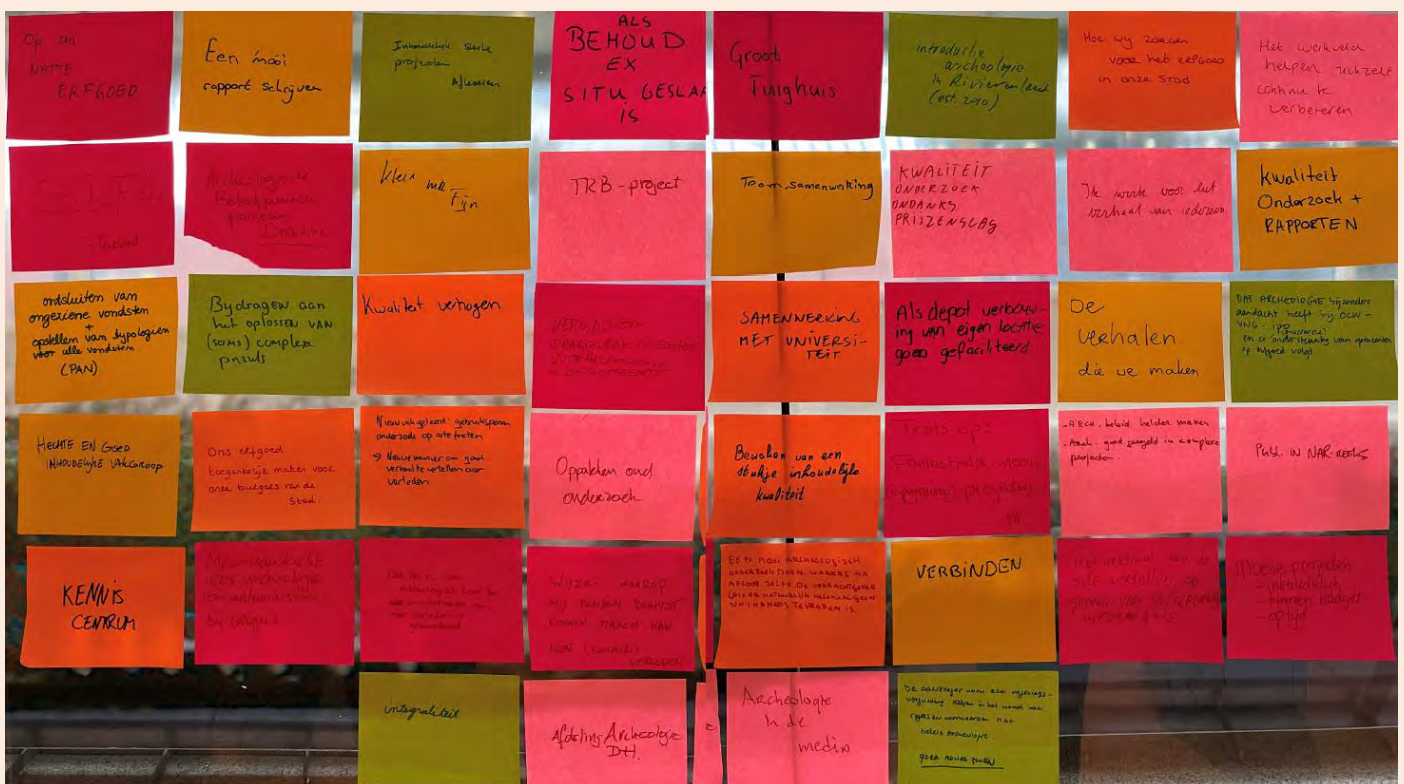 Op ons
NATTE
ERFGOED
Een mooi
rapport schrijven
Inhoudelijk sterke
projecten
Afleveren
ALS
BEHOUD
EX
SITU GESLAA
IS
Groot
Tuighuis
introductie
archeologie
in Rivierenland
(est. 2010)
Hoe wij zorgen
voor het erfgoed
in onze stad
Het werkveld
helpen zichzelf
continu te
verbeteren
Archeologische
Drenthe
Klein maar
Fijn
TRB-project
Team samenwerking
KWALITEIT
ONDERZOEK
ONDANKS
PRIJZENSLAG
Ik werk voor het
verhaal van iedereen
Kwaliteit
Onderzoek +
RAPPORTEN
ontsluiten van
ongeziene vondsten
+
opstellen van typologieën
voor alle vondsten
(PAN)
Bijdragen aan
het oplossen VAN
(soms) complexe
puzzels
Kwaliteit verhogen
SAMENWERKING
MET UNIVERSI-
TEIT
Als depot verbouw-
ing van eigen locatie
goed gefaciliteerd.
De
verhalen
die we maken
DAT ARCHEOLOGIE bijzondere
aandacht heeft bij OCW-
VNG - IPO
en er ondersteuning van gemeenten
op erfgoed volgt
HECHTE EN GOED
INHOUDELIJKE VAKGROEP
Ons erfgoed
toegankelijk maken voor
onze burgers van de
Stad.
gebruikssporen
onderzoek op artefacten
→ Nieuwe manier om goed
verhaal te vertellen over
verleden
Oppakken oud
onderzoek
Bewaken van een
stukje inhoudelijke
kwaliteit
Trots op:
Fantastisch mooi
(opgraving) projecten
- ARCH. beleid helder maken
- Arch. goed geregeld in complexe
projecten.
Publ. IN NAR-REEKS
KENNIS
CENTRUM
Meer aandacht
voor archeologie
WIJZE WAAROP
WIJ MENSEN BEWUST
KUNNEN MAKEN VAN
HUN (LOKALE)
VERLEDEN
EEN MOOI ARCHEOLOGISCH
ONDERZOEK DOEN, WAARBIJ NA
AFLOOP ZELFS DE OPDRACHTGEVER
(DIE ER NATUURLIJK HELEMAAL GEEN
ZIN IN HAD) TEVREDEN IS.
VERBINDEN
Het verhaal van de
site vertellen op
Mooie projecten
- inhoudelijk
- binnen budget
- op tijd
integraliteit
Afdeling Archeologie
DH.
Archeologie
in de
media
De aanvrager van een omgevings-
vergunning helpen in het woud van
regels en voorwaarden m.b.t.
beleid Archeologie
GOED ADVIES GEVEN